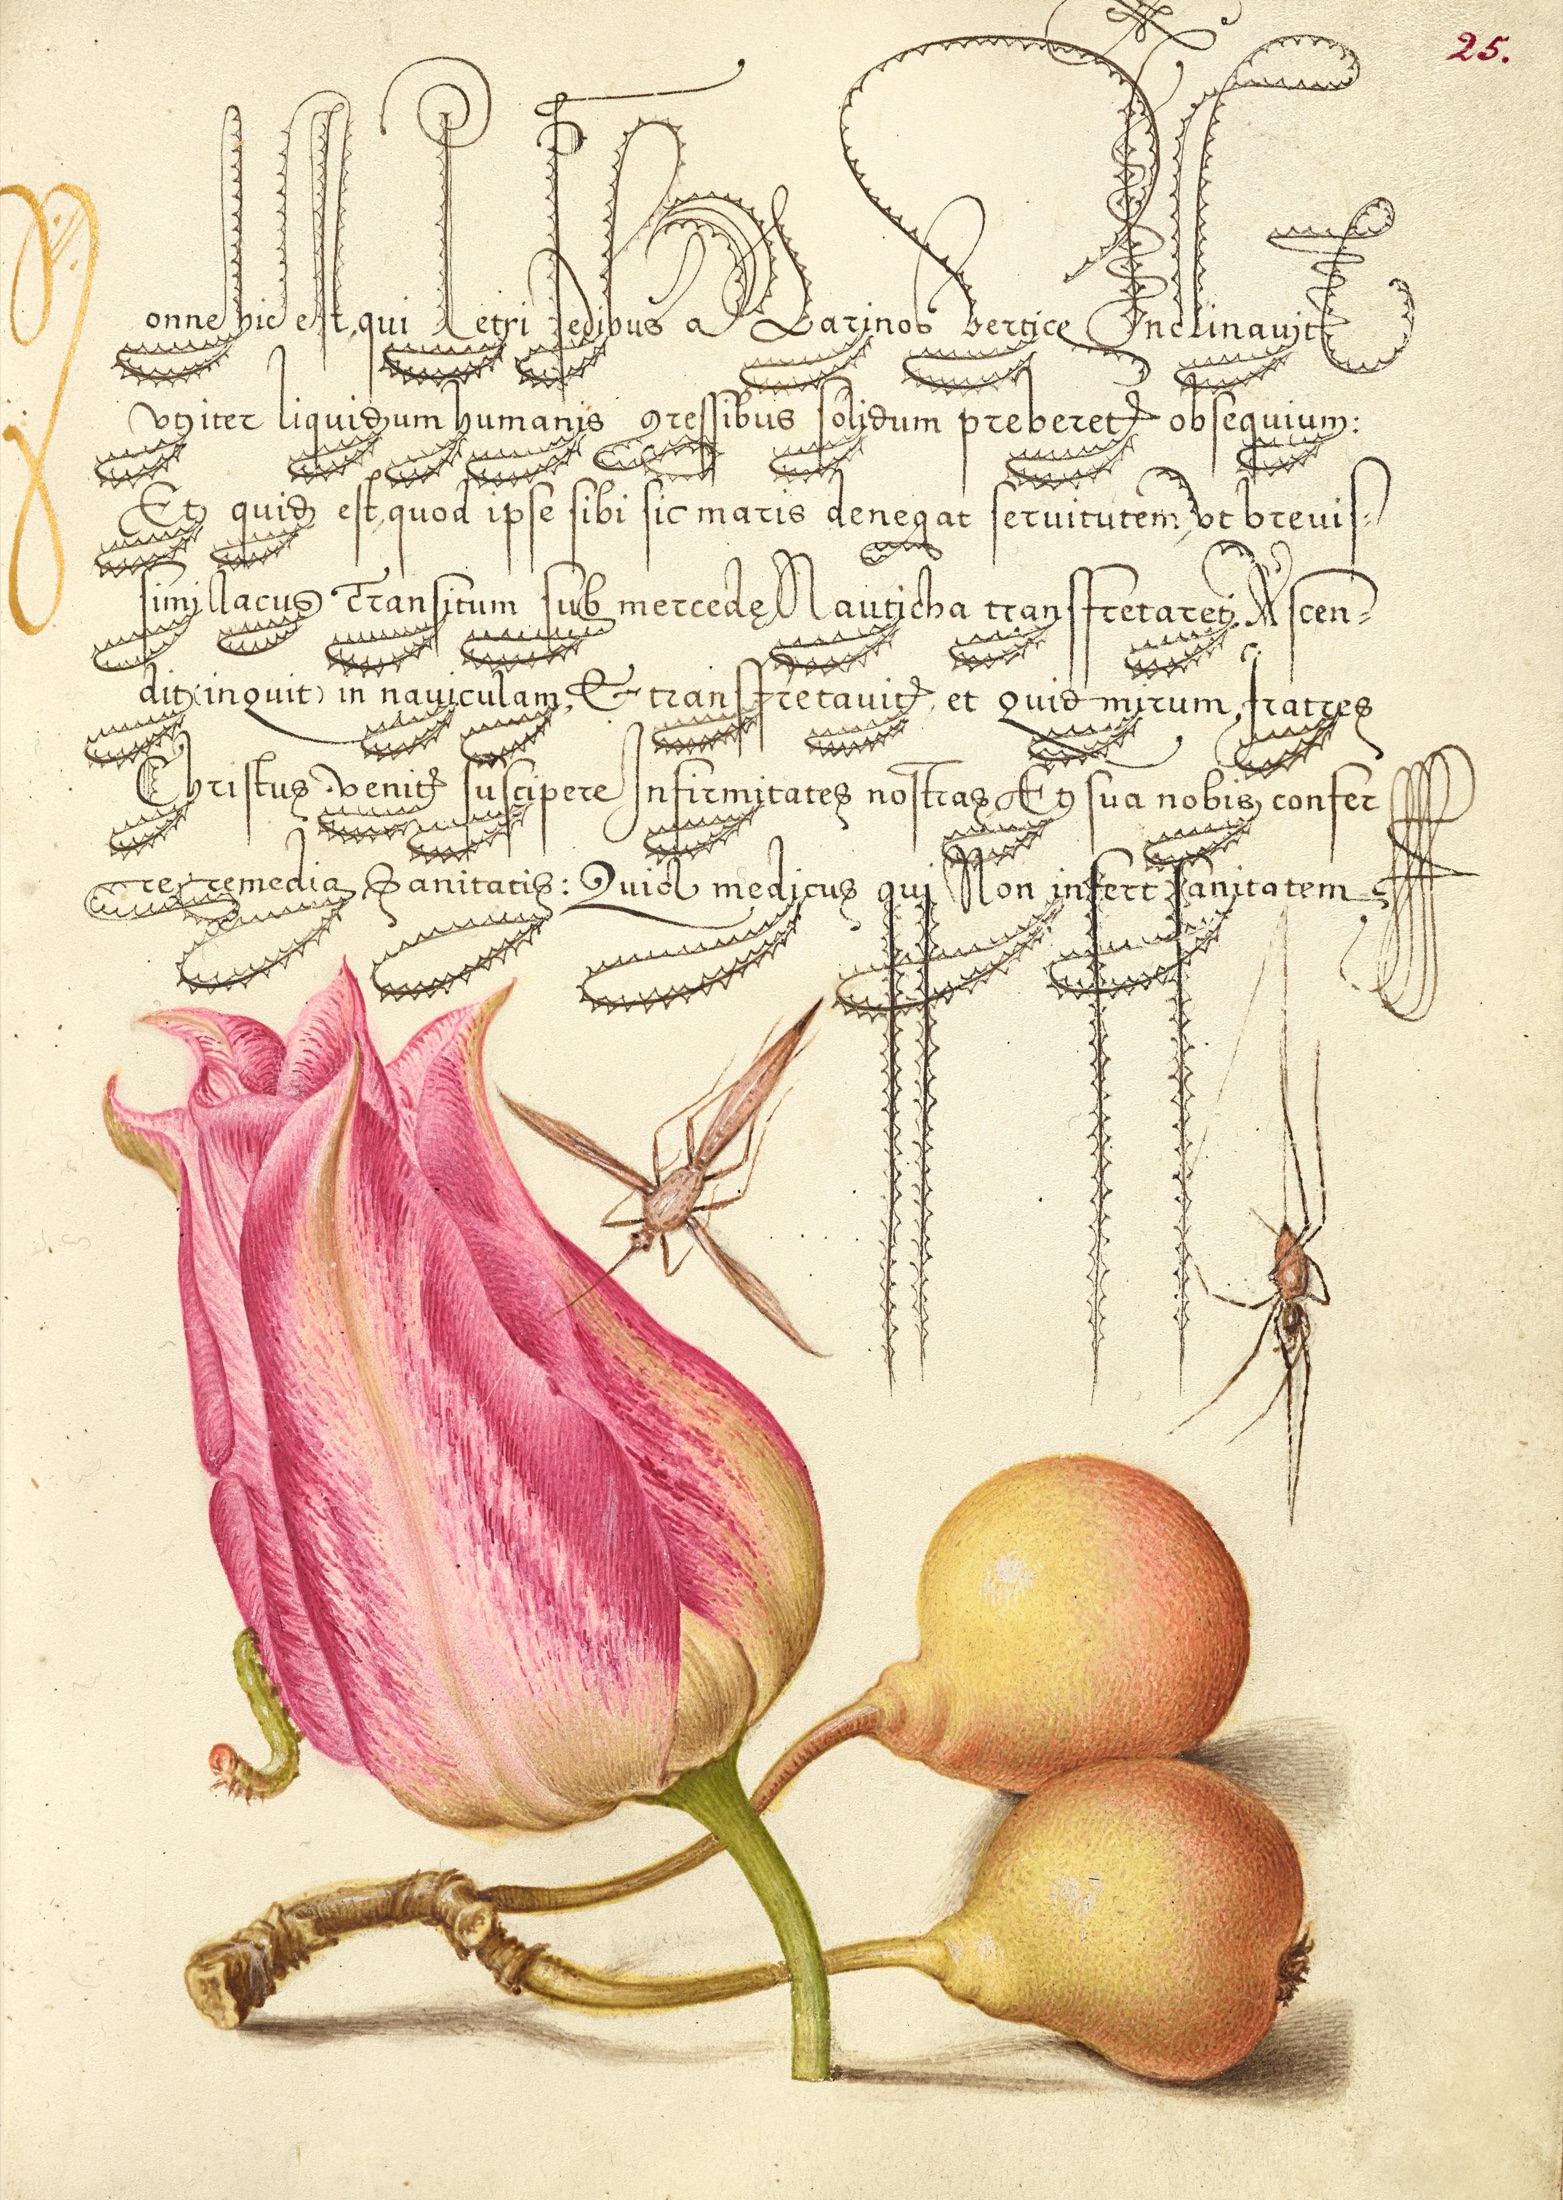 25.
Nonne hic est, qui Petri pedibus a Marinos vertice Inclinavit
vt iter liquidum humanis gressibus solidum preberet obsequium:
Et quid est, quod ipse sibi sic maris denegat seruitutem, vt breuis=
simi lacus Transitum sub mercede Nauticha transfretaret. Ascen=
dit (inquit) in naviculam, & transfretavit, et quid mirum, fratres
Christus venit suscipere Infirmitates nostras Et sua nobis confer
re remedia Sanitatis: Quid medicus qui Non infert sanitatem